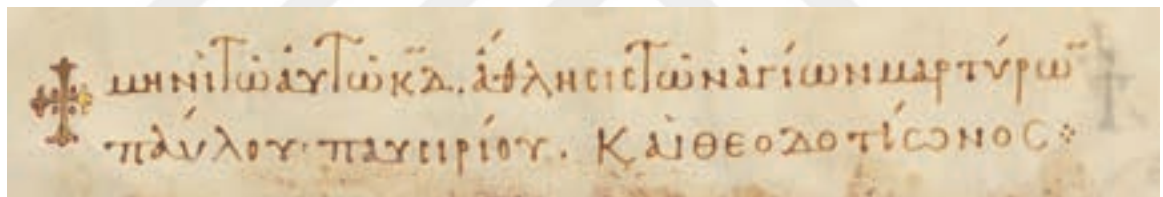 μηνὶ τῶ ἀυτῶ κ̅δ. ἄθλησις τῶν ἁγίων μαρτύρω̅
παύλου· παυσιρίου. Καὶ θεοδοτίωνος ⁘